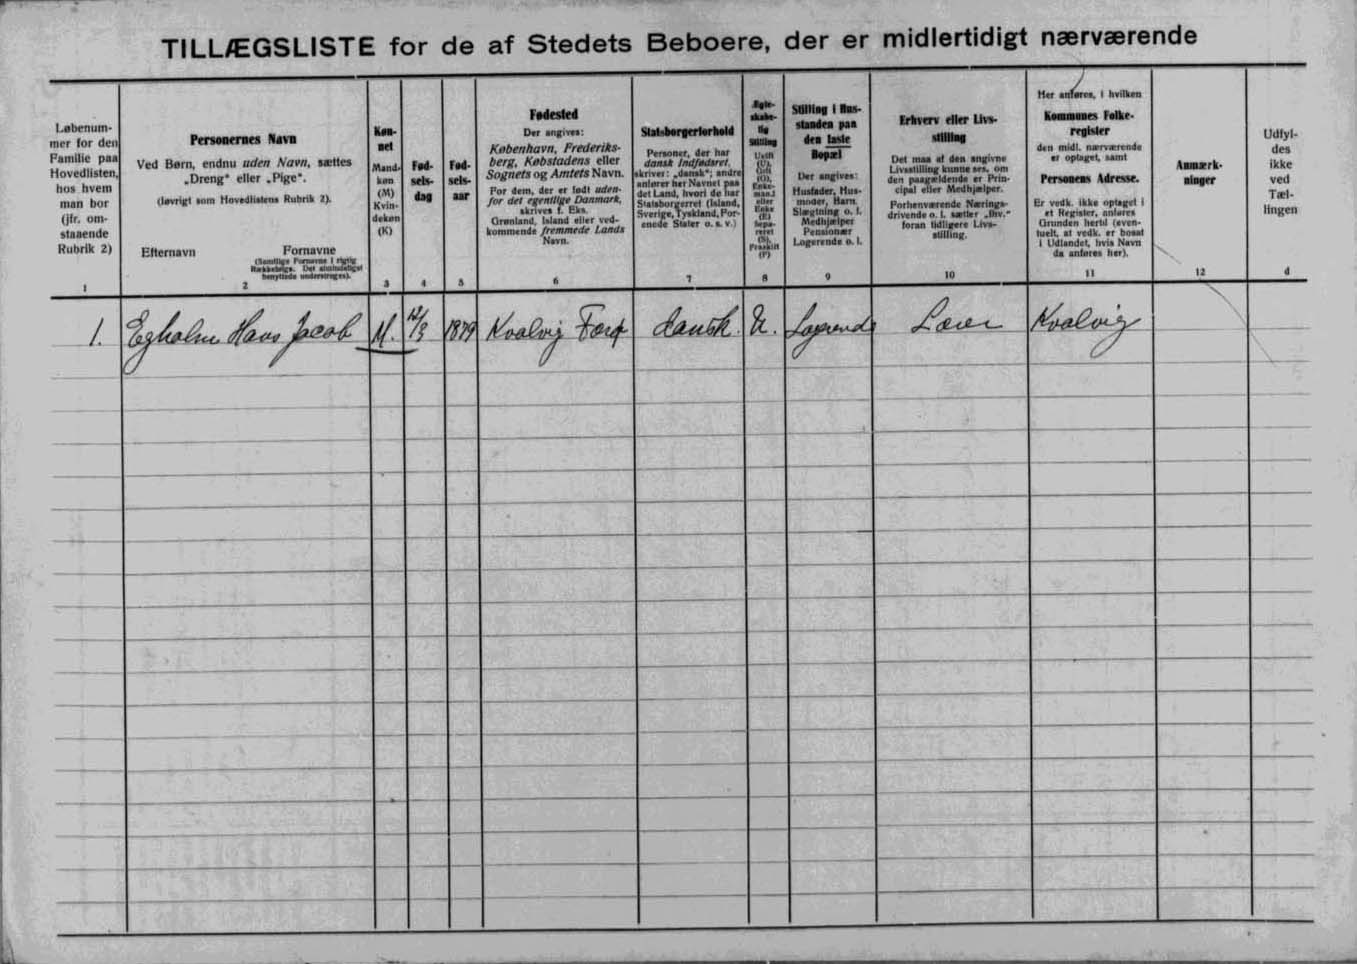 TILLÆGSLISTE for de af Stedets Beboere, der er midlertidigt nærværende
Løbenum-
mer for den
Familie paa
Hovedlisten,
hos hvem
man bor
(jfr. om-
staaende
Rubrik 2)
1
Personernes Navn
Ved Børn, endnu uden Navn, sættes
„Dreng“ eller „Pige“.
(Iøvrigt som Hovedlistens Rubrik 2).
Efternavn Fornavne
(Samtlige Fornavne i rigtig
Rækkefølge. Det almindeligst
benyttede understreges).
2
Køn-
net
Mand-
køn
(M)
Kvin-
dekøn
(K)
3
Fød-
sels-
dag
4
Fød-
sels-
aar
5
Fødested
Der angives:
København, Frederiks-
berg, Købstadens eller
Sognets og Amtets Navn.
For dem, der er født uden-
for det egentlige Danmark,
skrives f. Eks.
Grønland, Island eller ved-
kommende fremmede Lands
Navn.
6
Statsborgerforhold
Personer, der har
dansk Indfødsret,
skriver: „dansk“; andre
anfører her Navnet paa
det Land, hvori de har
Statsborgerret (Island,
Sverige, Tyskland, For-
enede Stater o. s. v.)
7
Ægte-
skabe-
lig
Stilling
Ugift
(U),
Gift
(G),
Enke-
mand
eller
Enke
(E)
Sepa-
reret
(S),
Fraskilt
(F)
8
Stilling i Hus-
standen paa
den faste
Bopæl
Der angives:
Husfader, Hus-
moder, Barn,
Slægtning o. l.
Medhjælper
Pensionær
Logerende o. l.
9
Erhverv eller Livs-
stilling
Det maa af den angivne
Livsstilling kunne ses, om
den paagældende er Prin-
cipal eller Medhjælper.
Forhenværende Nærings-
drivende o. l. sætter „fhv.“
foran tidligere Livs-
stilling.
10
Her anføres, i hvilken
Kommunes Folke-
register
den midl. nærværende
er optaget, samt
Personens Adresse.
Er vedk. ikke optaget i
et Register, anføres
Grunden hertil (even-
tuelt, at vedk. er bosat
i Udlandet, hvis Navn
da anføres her).
11
Anmærk-
ninger
12
Udfyl-
des
ikke
ved
Tæl-
lingen
d
1. Egholm Hans Jacob M. 12/3 1879 Kvalvig Færø dansk. U. Logerende Lærer Kvalvig